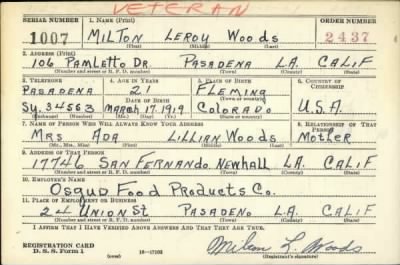 VETERAN
SERIAL NUMBER 1. NAME (Print) ORDER NUMBER
1007 MILTON LEROY WOODS 2437
(First) (Middle) (Last)
2. ADDRESS (Print)
106 PAMLETTO DR. PASADENA L.A. CALIF
(Number and street or R. F. D. number) (Town) (County) (State)
3. TELEPHONE 4. AGE IN YEARS 5. PLACE OF BIRTH 6. COUNTRY OF CITIZENSHIP
PASADENA 21 FLEMING
DATE OF BIRTH (Town or county)
SY. 34563 MARCH 17, 1919 COLORADO U.S.A.
(Exchange) (Number) (Mo.) (Day) (Yr.) (State or country)
7. NAME OF PERSON WHO WILL ALWAYS KNOW YOUR ADDRESS 8. RELATIONSHIP OF THAT PERSON
MRS ADA LILLIAN WOODS MOTHER
(Mr., Mrs., Miss) (First) (Middle) (Last)
9. ADDRESS OF THAT PERSON
17746 SAN FERNANDO, NEWHALL L.A. CALIF
(Number and street or R. F. D. number) (Town) (County) (State)
10. EMPLOYER'S NAME
OSGUD FOOD PRODUCTS CO.
11. PLACE OF EMPLOYMENT OR BUSINESS
24 UNION ST PASADENA L.A. CALIF
(Number and street or R. F. D. number) (Town) (County) (State)
I AFFIRM THAT I HAVE VERIFIED ABOVE ANSWERS AND THAT THEY ARE TRUE.
REGISTRATION CARD
D. S. S. Form 1 (over) 16—17105 Milton L. Woods
(Registrant's signature)